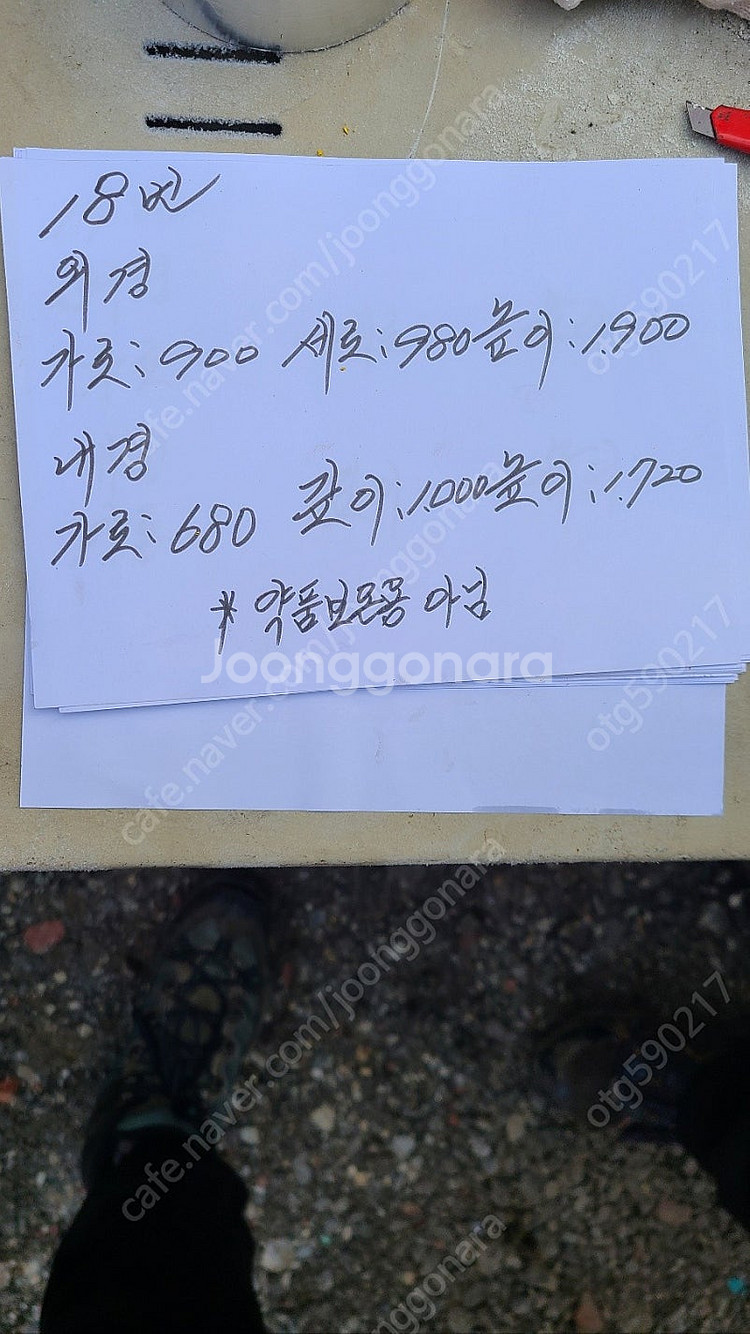 18번
외경
가로: 900 세로: 980 높이: 1.900
내경
가로: 680 깊이: 1.000 높이: 1.720
* 약품보온용 아님
Joonggonara
cafe.naver.com/joonggonara
otg590217
cafe.naver.com/joonggonara
otg590217
cafe.naver.com/joonggonara
otg590217